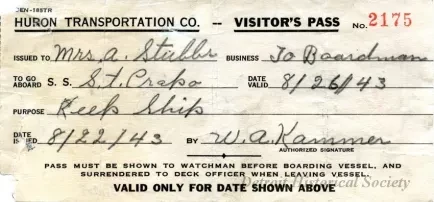 GEN-185TR
HURON TRANSPORTATION CO. -- VISITOR'S PASS No. 2175
ISSUED TO Mrs. A. Stubbs BUSINESS To Boardman
TO GO ABOARD S. S. S.T. Crapo DATE VALID 8/26/43
PURPOSE Keep Ship
DATE ISSUED 8/22/43 BY W.A. Kammer
AUTHORIZED SIGNATURE
PASS MUST BE SHOWN TO WATCHMAN BEFORE BOARDING VESSEL, AND
SURRENDERED TO DECK OFFICER WHEN LEAVING VESSEL.
VALID ONLY FOR DATE SHOWN ABOVE
Detroit Historical Society